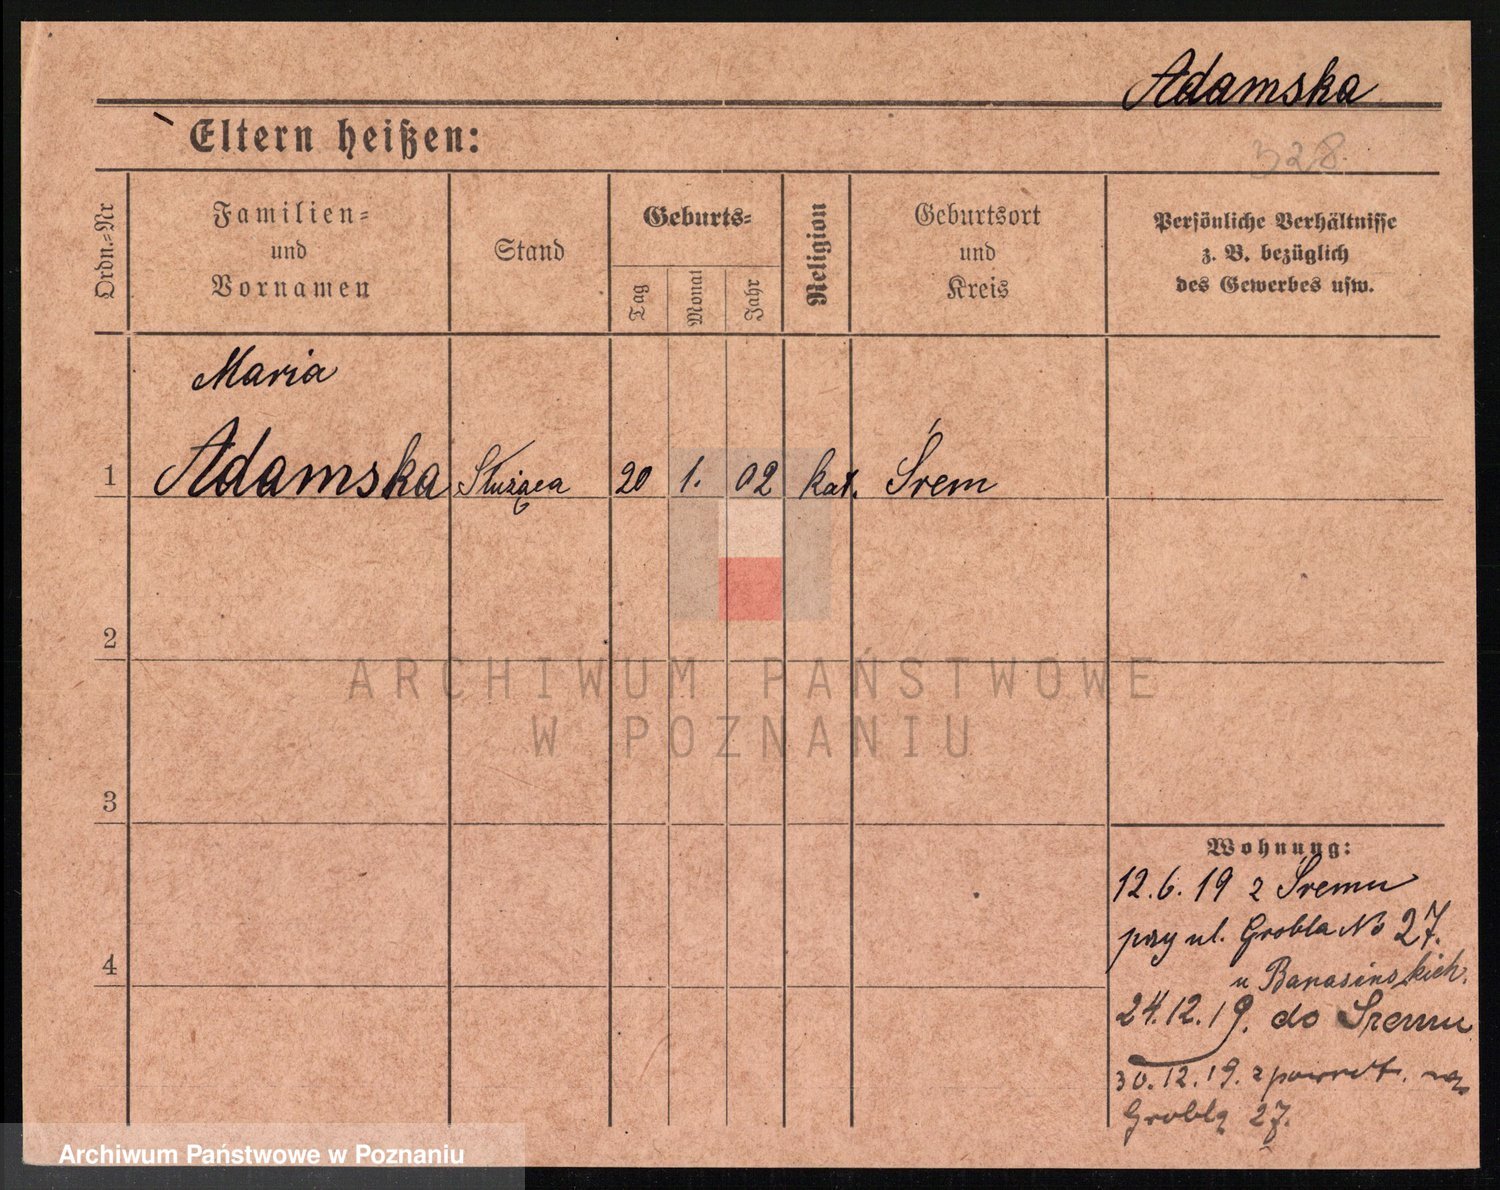 Adamska
328.
Eltern heißen:
Ordn.=Nr
Familien=
und
Vornamen
Stand
Geburts=
Tag
Monat
Jahr
Religion
Geburtsort
und
Kreis
Persönliche Verhältnisse
z. B. bezüglich
des Gewerbes usw.
Maria
1 Adamska Służąca 20 1. 02 kat. Śrem
2
3
4
Wohnung:
12.6.19 z Śremu
przy ul. Grobla No 27.
u Banasińskich.
24.12.19. do Śremu
30.12.19. z powrot. na
Groblą 27.
ARCHIWUM PAŃSTWOWE
W POZNANIU
Archiwum Państwowe w Poznaniu